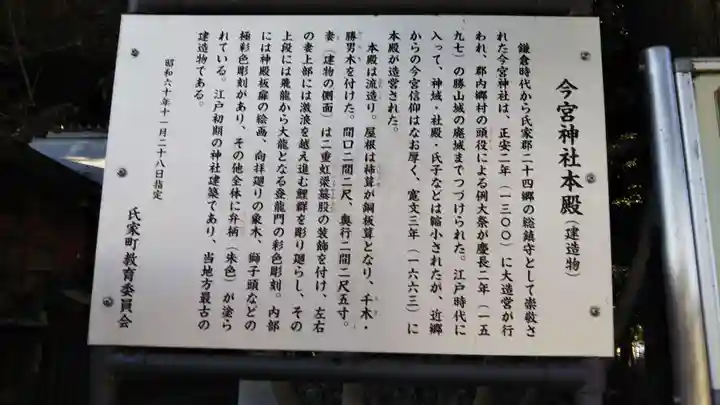 今宮神社本殿（建造物）
鎌倉時代から氏家郡二十四郷の総鎮守として崇敬さ
れた今宮神社は、正安二年（一三〇〇）に大造営が行
われ、郡内郷村の頭役による例大祭が慶長二年（一五
九七）の勝山城の廃城までつづけられた。江戸時代に
入って、神域・社殿・氏子などは縮小されたが、近郷
からの今宮信仰はなお厚く、寛文三年（一六六三）に
本殿が造営された。
本殿は流造り。屋根は柿葺が銅板葺となり、千木・
勝男木を付けた。間口二間二尺、奥行二間二尺五寸。
妻（建物の側面）は二重虹梁蟇股の装飾を付け、左右
の妻上部には激浪を越え進む鯉群を彫り廻らし、その
上段には飛龍から大龍となる登龍門の彩色彫刻。内部
には神殿板扉の絵画、向拝廻りの象木、獅子頭などの
極彩色彫刻があり、その他全体に弁柄（朱色）が塗ら
れている。江戸初期の神社建築であり、当地方最古の
建造物である。
昭和六十年十一月二十八日指定
氏家町教育委員会